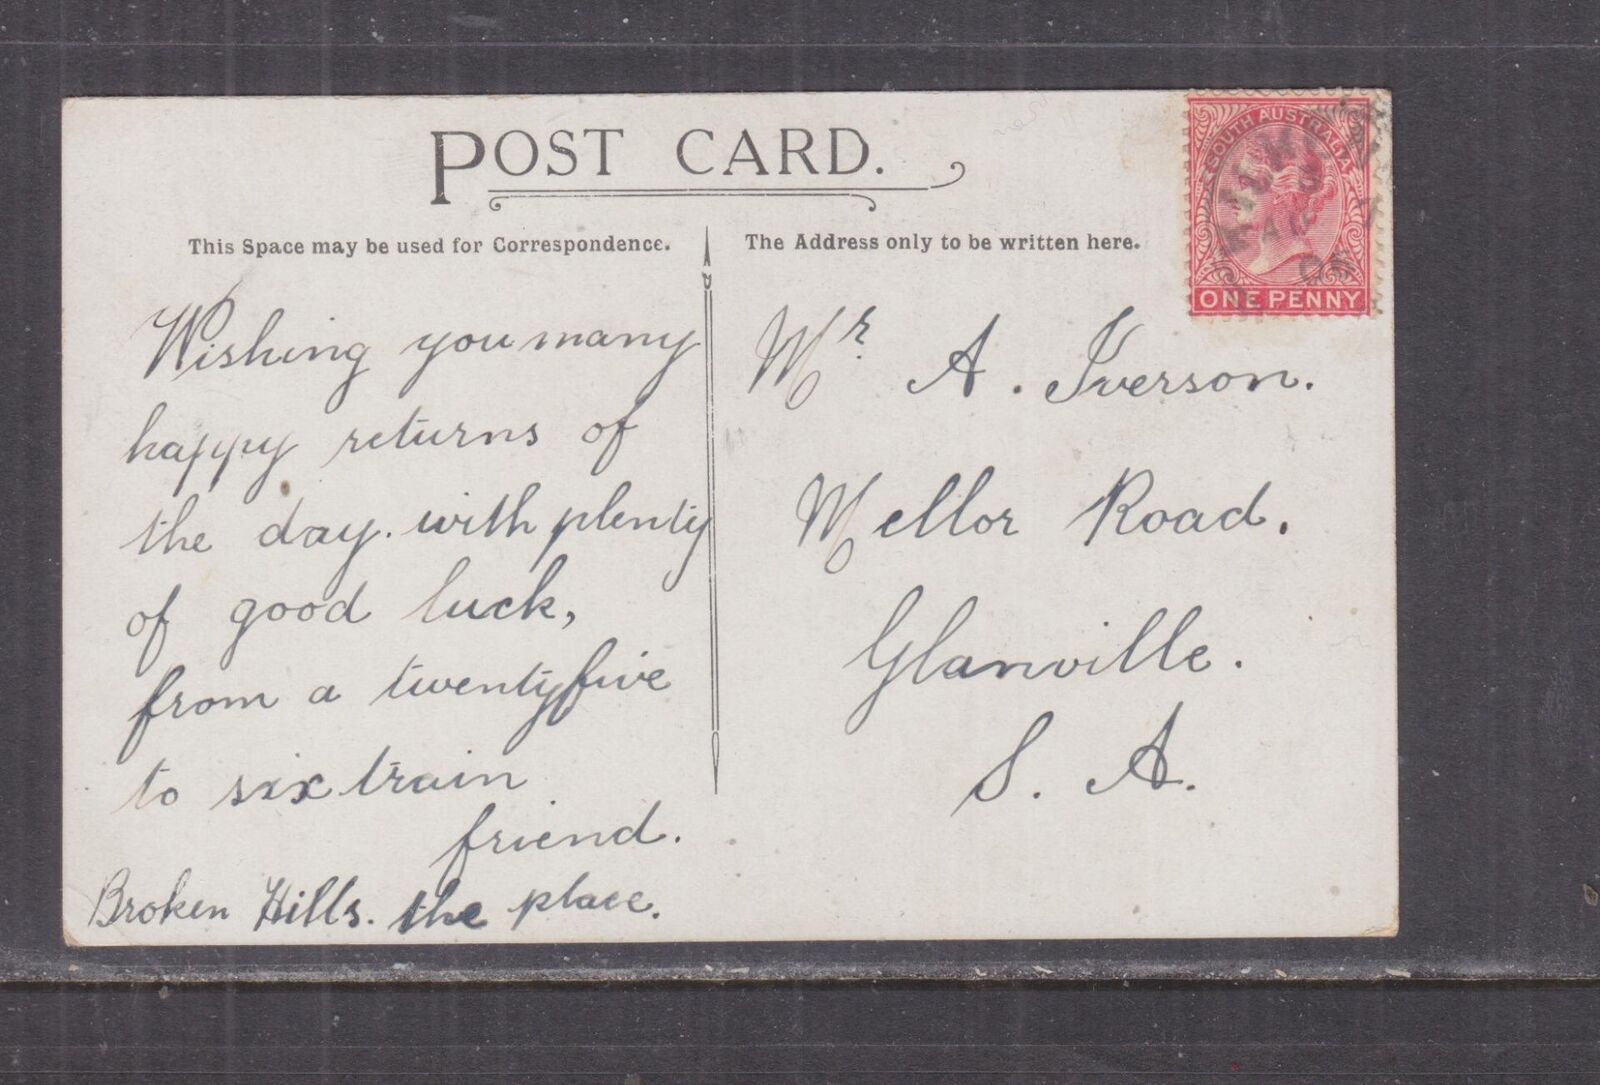 POST CARD.
This Space may be used for Correspondence.
The Address only to be written here.
SOUTH AUSTRALIA
ONE PENNY
Wishing you many
happy returns of
the day. with plenty
of good luck,
from a twentyfive
to six train
friend.
Broken Hills. the place.
Mr A. Iverson.
Mellor Road.
Glanville.
S. A.